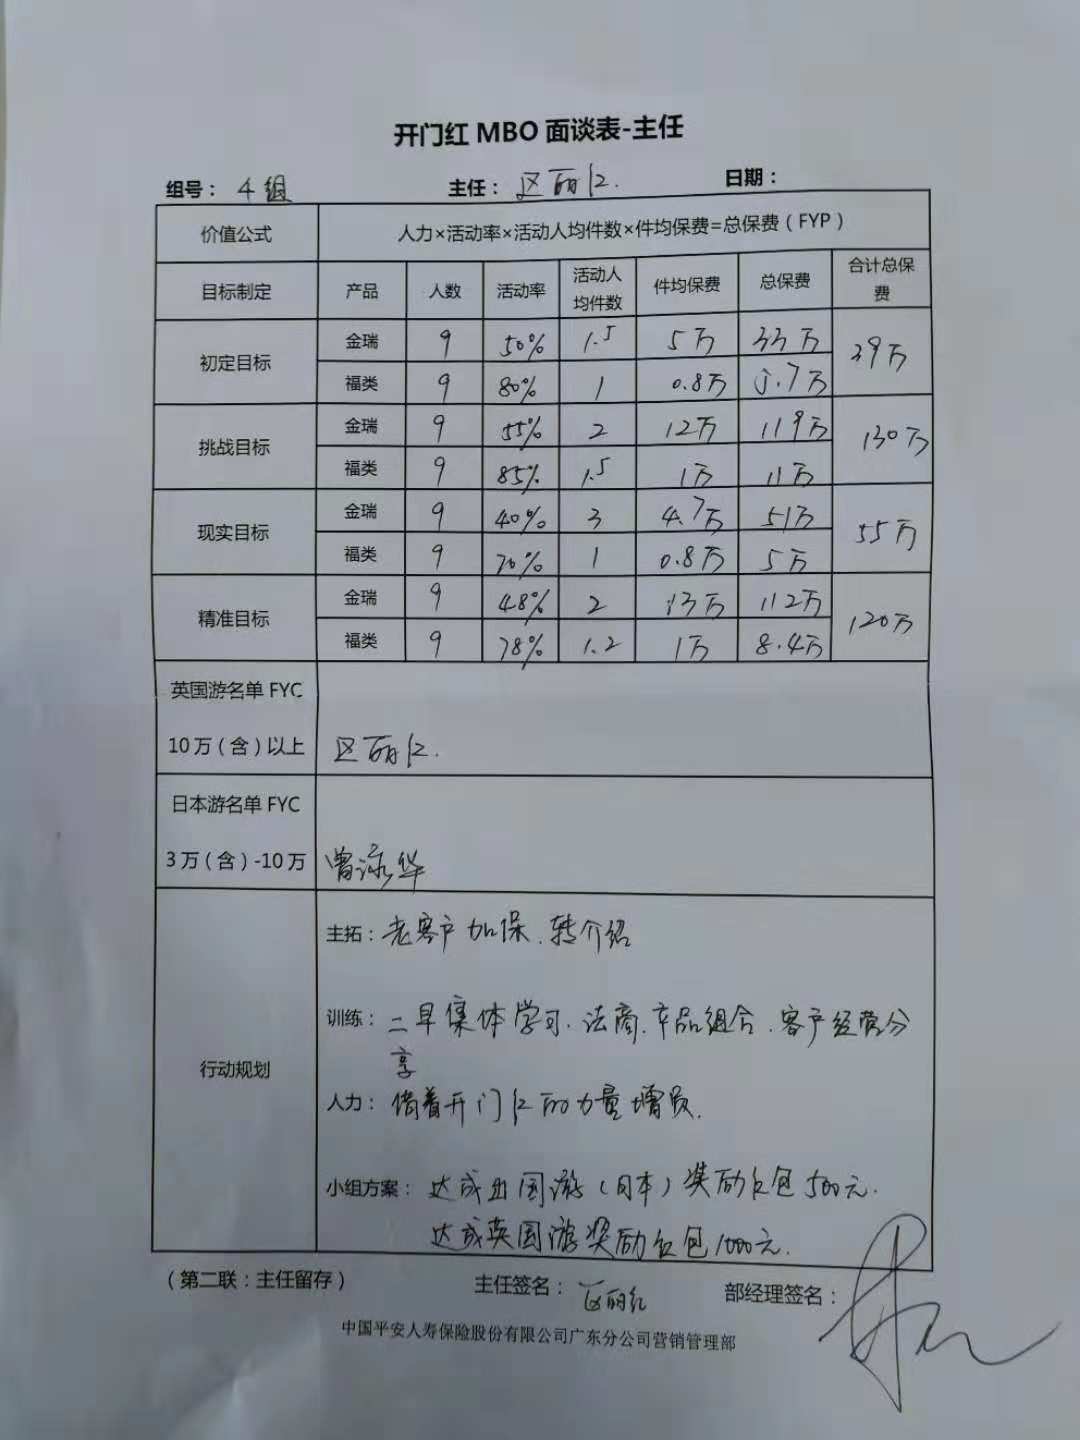 开门红 MBO 面谈表-主任
组号： 4组 主任： 区丽红. 日期：
价值公式 人力×活动率×活动人均件数×件均保费=总保费（FYP）
目标制定 产品 人数 活动率 活动人均件数 件均保费 总保费 合计总保费
初定目标 金瑞 9 50% 1.5 5万 33万 39万
福类 9 80% 1 0.8万 5.7万
挑战目标 金瑞 9 55% 2 12万 119万 130万
福类 9 85% 1.5 1万 11万
现实目标 金瑞 9 40% 3 4.7万 51万 55万
福类 9 70% 1 0.8万 5万
精准目标 金瑞 9 48% 2 13万 112万 120万
福类 9 78% 1.2 1万 8.4万
英国游名单 FYC
10万（含）以上 区丽红.
日本游名单 FYC
3万（含）-10万 曾泳华
行动规划
主拓：老客户加保、转介绍
训练：二早集体学习、法商、产品组合、客户经营分
享
人力：借着开门红的力量增员.
小组方案：达成出国游（日本）奖励红包500元.
达成英国游奖励红包1000元.
（第二联：主任留存） 主任签名： 区丽红 部经理签名：
中国平安人寿保险股份有限公司广东分公司营销管理部